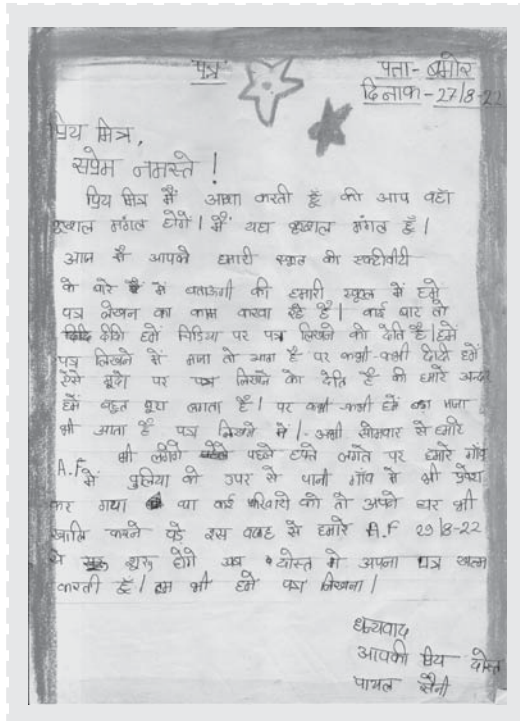 पत्र
पता- बमोर
दिनाक - 27/8-22
प्रिय मित्र,
सप्रेम नमस्ते !
प्रिय मित्र मैं आशा करती हूँ की आप वहाँ
कुशल मंगल होगें। मैं यहा कुशल मंगल हूँ।
आज मैं आपको हमारी स्कूल की एक्टीवीटी
के बारे में बताऊंगी की हमारी स्कूल में हमे
पत्र लेखन का काम करवा रहे है। कई बार तो
दीदी हमें चिडिया पर पत्र लिखने को देती है। हमें
पत्र लिखने में मजा तो आता है पर कभी-कभी दीदी हमें
ऐसे मूदो पर पत्र लिखने को देति है की हमारे अन्दर
हमें बहुत बूरा लगता है। पर कभी-कभी हमें बडा मजा
भी आता है पत्र लिखने में। अभी सोमवार से हमारे
A.F भी लगेंगे पहले हफ्ते लगते पर हमारे गाँव
में पुलिया की उपर से पानी गाँव में भी प्रवेश
कर गया था कई परिवारो को तो अपने घर भी
खालि करने पडे इस वजह से हमारे A.F 29/8-22
से शुरू होगे अब दोस्त मे अपना पत्र खत्म
करती हूँ। तुम भी हमे पत्र लिखना।
धन्यवाद
आपकी प्रिय दोस्त
पायल सैनी